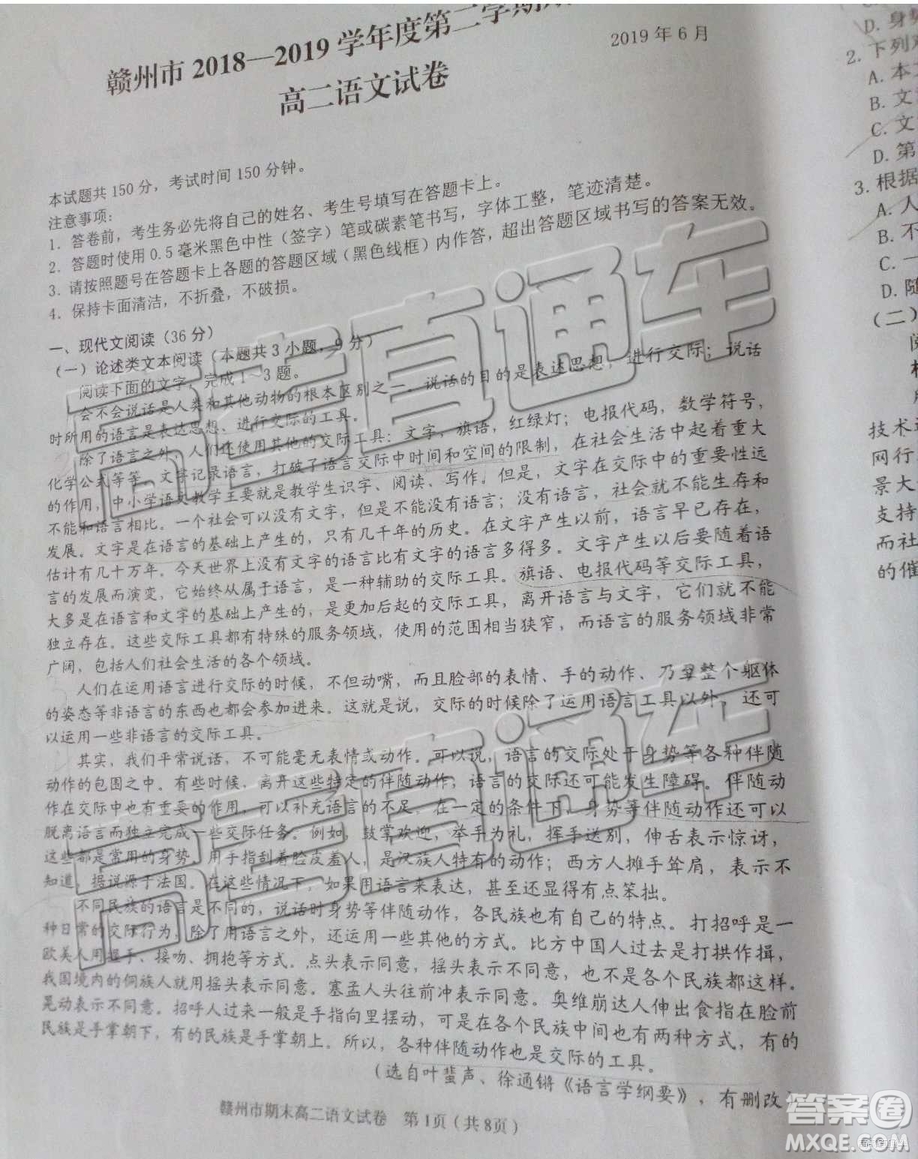 赣州市 2018—2019 学年度第二学期
2019 年 6 月
高二语文试卷
本试题共 150 分，考试时间 150 分钟。
注意事项：
1. 答卷前，考生务必先将自己的姓名、考生号填写在答题卡上。
2. 答题时使用 0.5 毫米黑色中性（签字）笔或碳素笔书写，字体工整，笔迹清楚。
3. 请按照题号在答题卡上各题的答题区域（黑色线框）内作答，超出答题区域书写的答案无效。
4. 保持卡面清洁，不折叠，不破损。
一、现代文阅读（36 分）
（一）论述类文本阅读（本题共 3 小题，9 分）
阅读下面的文字，完成 1～3 题。
会不会说话是人类和其他动物的根本区别之一。说话的目的是表达思想，进行交际；说话
时所用的语言是表达思想、进行交际的工具。
除了语言之外，人们还使用其他的交际工具：文字，旗语，红绿灯；电报代码，数学符号，
化学公式等等。文字记录语言，打破了语言交际中时间和空间的限制，在社会生活中起着重大
的作用，中小学语文教学主要就是教学生识字、阅读、写作。但是，文字在交际中的重要性远
不能和语言相比。一个社会可以没有文字，但是不能没有语言；没有语言，社会就不能生存和
发展。文字是在语言的基础上产生的，只有几千年的历史。在文字产生以前，语言早已存在，
估计有几十万年。今天世界上没有文字的语言比有文字的语言多得多。文字产生以后要随着语
言的发展而演变，它始终从属于语言，是一种辅助的交际工具。旗语、电报代码等交际工具，
大多是在语言和文字的基础上产生的，是更加后起的交际工具，离开语言与文字，它们就不能
独立存在。这些交际工具都有特殊的服务领域，使用的范围相当狭窄，而语言的服务领域非常
广阔，包括人们社会生活的各个领域。
人们在运用语言进行交际的时候，不但动嘴，而且脸部的表情、手的动作、乃至整个躯体
的姿态等非语言的东西也都会参加进来。这就是说，交际的时候除了运用语言工具以外，还可
以运用一些非语言的交际工具。
其实，我们平常说话，不可能毫无表情或动作。可以说，语言的交际处于身势等各种伴随
动作的包围之中。有些时候，离开这些特定的伴随动作，语言的交际还可能发生障碍。伴随动
作在交际中也有重要的作用，可以补充语言的不足，在一定的条件下，身势等伴随动作还可以
脱离语言而独立完成一些交际任务。例如，鼓掌欢迎，举手为礼，挥手送别，伸舌表示惊讶，
这些都是常用的身势。用手指刮着脸皮羞人，是汉族人特有的动作；西方人摊手耸肩，表示不
知道，据说源于法国。在这些情况下，如果用语言来表达，甚至还显得有点笨拙。
不同民族的语言是不同的，说话时身势等伴随动作，各民族也有自己的特点。打招呼是一
种日常的交际行为，除了用语言之外，还可以运用一些其他的方式。比方中国人过去是打拱作揖，
欧美人用握手、接吻、拥抱等方式。点头表示同意，摇头表示不同意，也不是各个民族都这样。
我国境内的佤族人就用摇头表示同意。塞孟人头往前冲表示同意。奥维崩达人伸出食指在脸前
晃动表示不同意。招呼人过来一般是手指向里摆动，可是在各个民族中间也有两种方式，有的
民族是手掌朝下，有的民族是手掌朝上。所以，各种伴随动作也是交际的工具。
（选自叶蜚声、徐通锵《语言学纲要》，有删改
赣州市期末高二语文试卷 第1页（共8页）
D. 身势
2. 下列对
A. 本文
B. 文
C. 文
D. 第
3. 根据
A. 人
B. 不
C. 一
D. 随
（二）
阅
技术
网行
景大
支持
而社
的催
高考直通车
高考直通车
答案圈
MXQE.COM